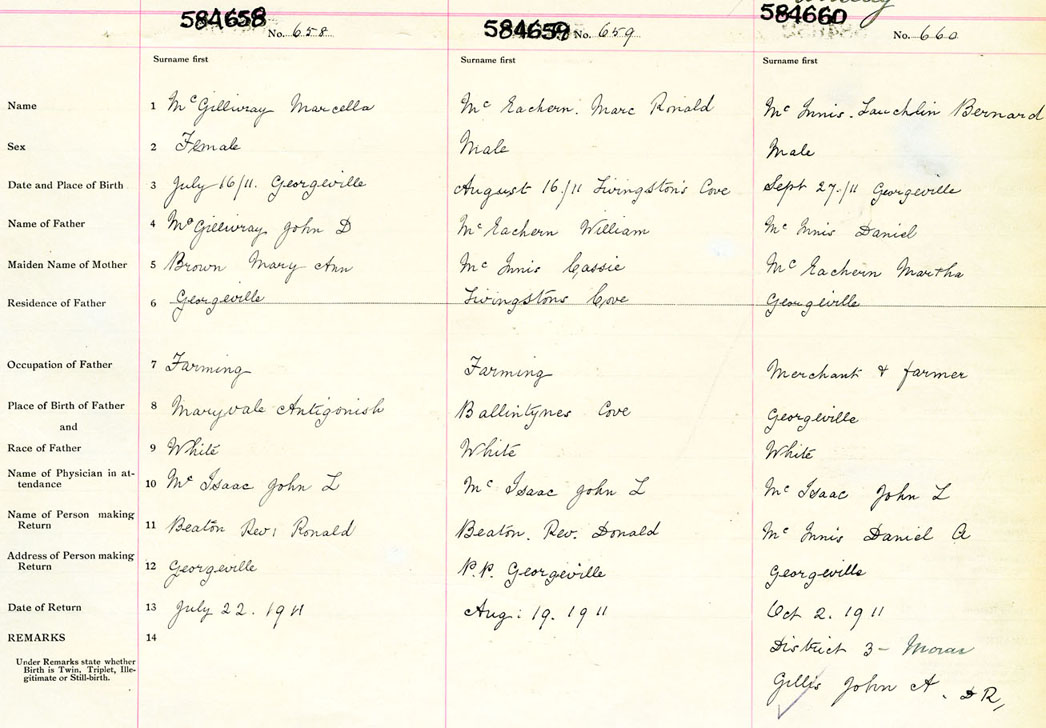 584658 No. 658 584659 No. 659 584660 No. 660
Surname first Surname first Surname first
Name 1 McGillivray Marcella Mc Eachern. Marc Ronald Mc Innis. Lauchlin Bernard
Sex 2 Female Male Male
Date and Place of Birth 3 July 16/11. Georgeville August 16/11 Livingstons Cove Sept 27/11 Georgeville
Name of Father 4 McGillivray John D McEachern William Mc Innis Daniel
Maiden Name of Mother 5 Brown Mary Ann Mc Innis Cassie Mc Eachern Martha
Residence of Father 6 Georgeville Livingstons Cove Georgeville
Occupation of Father 7 Farming Farming Merchant & farmer
Place of Birth of Father 8 Maryvale Antigonish Ballintynes Cove Georgeville
and
Race of Father 9 White White White
Name of Physician in at-
tendance 10 Mc Isaac John L Mc Isaac John L Mc Isaac John L
Name of Person making
Return 11 Beaton Rev: Ronald Beaton. Rev. Donald Mc Innis Daniel A
Address of Person making
Return 12 Georgeville P.P. Georgeville Georgeville
Date of Return 13 July 22. 1911 Aug: 19. 1911 Oct 2. 1911
REMARKS 14 District 3 –
Under Remarks state whether
Birth is Twin, Triplet, Ille-
gitimate or Still-birth.
Gillis John A. D R,